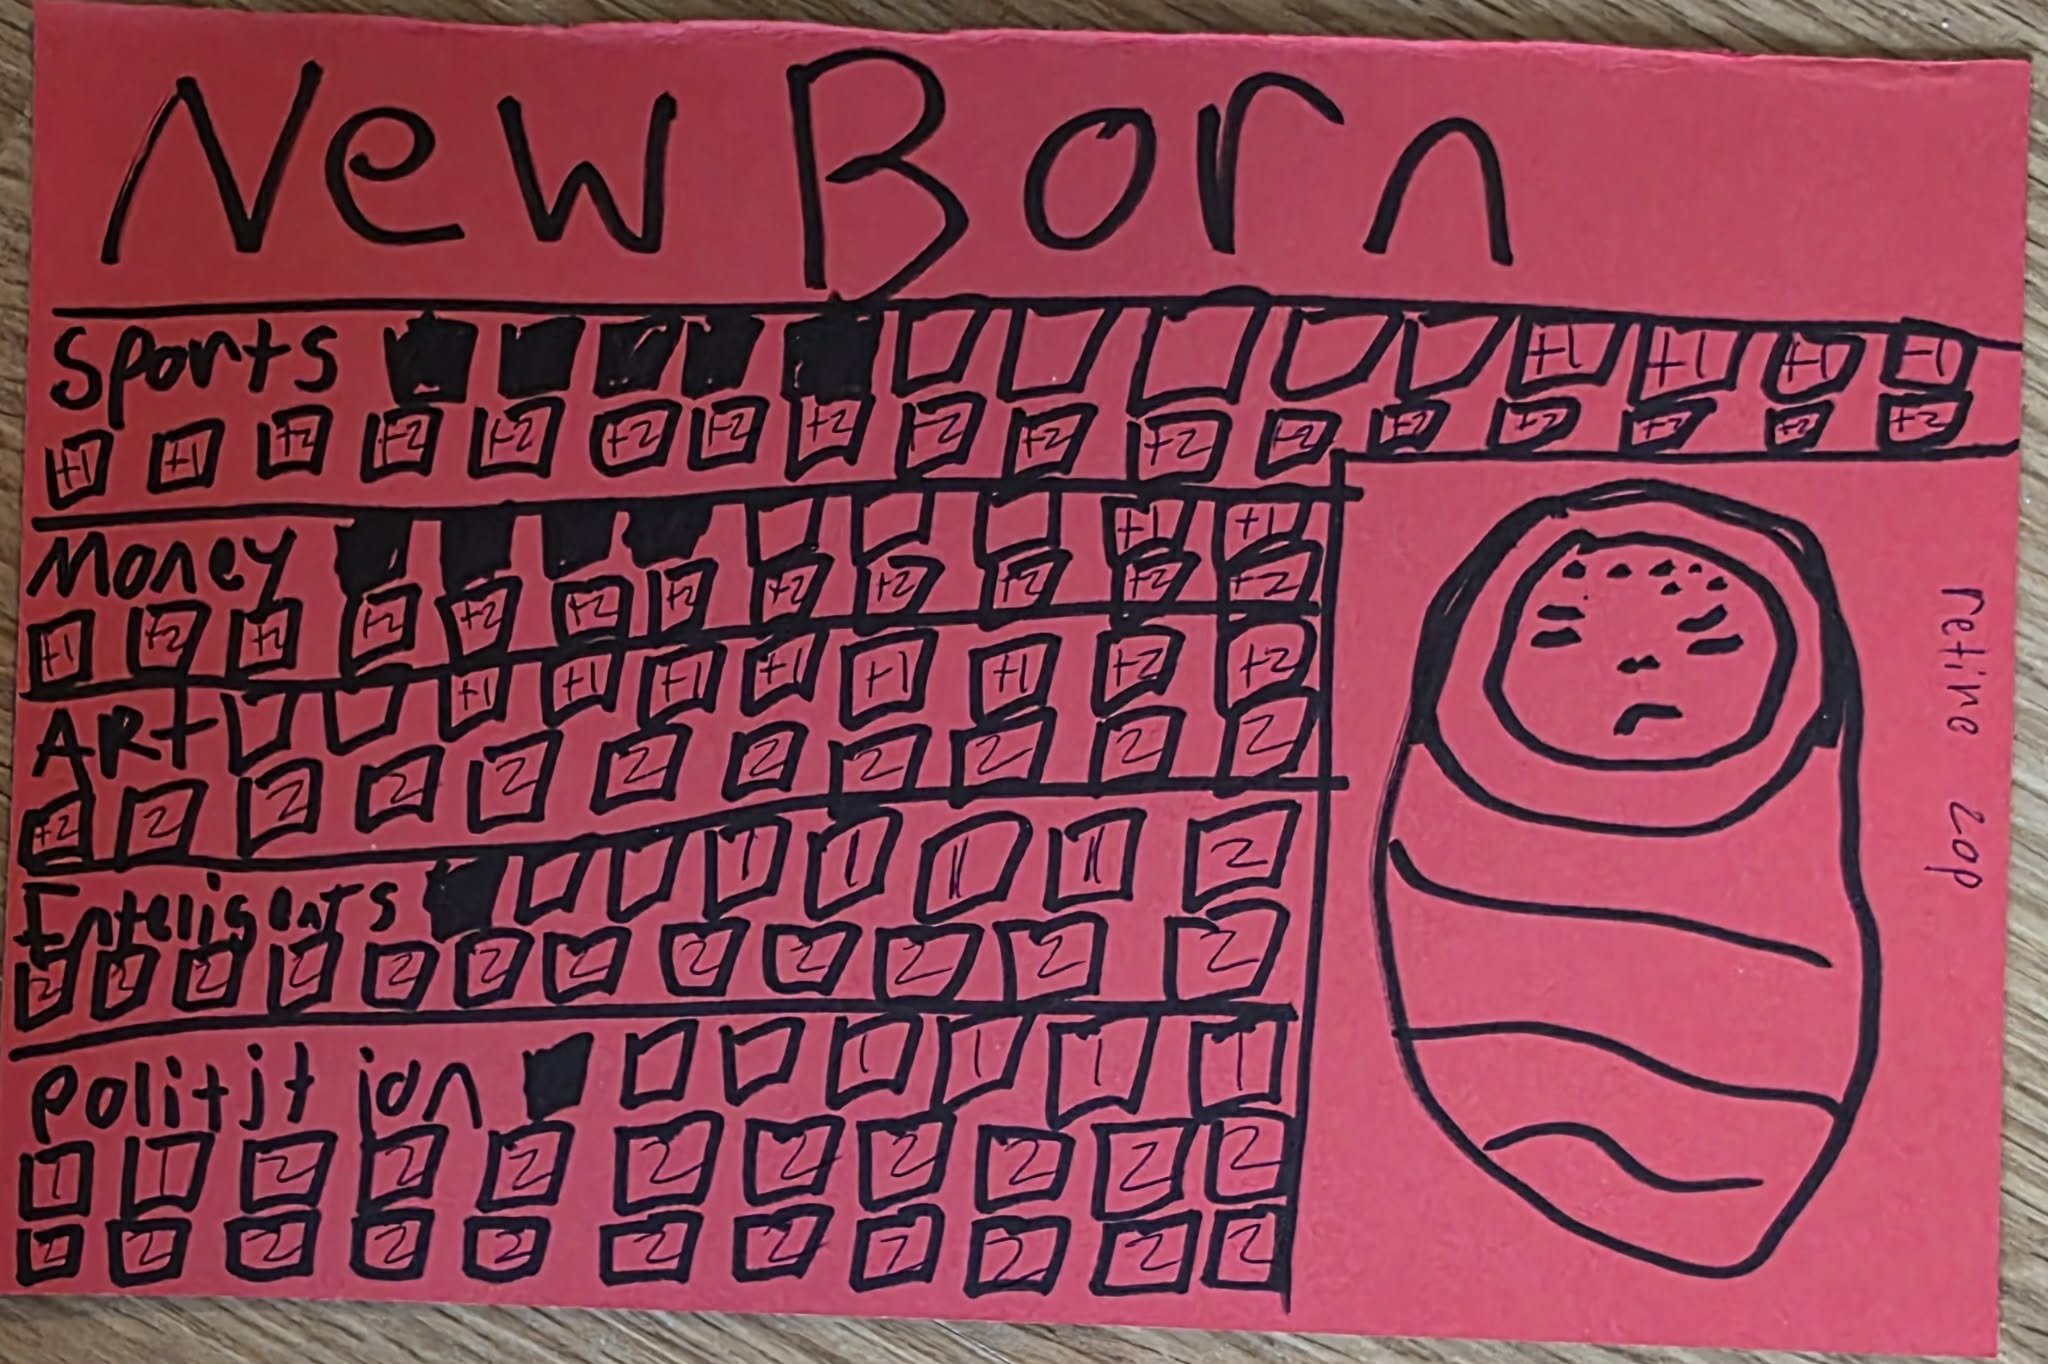 New Born
Sports +1 +1 +1 +1
+1 +1 +2 +2 +2 +2 +2 +2 +2 +2 +2 +2 +2 +2 +2 +2 +2
Money +1 +1
+1 +2 +2 +2 +2 +2 +2 +2 +2 +2 +2 +2
ARt +1 +1 +1 +1 +1 +1 +2 +2
+2 2 2 2 2 2 2 2 2 2 2
Enteligents 1 1 11 11 2
2 2 2 2 2 2 2 2 2 2 2 2
politjt ian 1 1 1 1
1 1 2 2 2 2 2 2 2 2 2
2 2 2 2 2 2 2 2 2 2 2
retine